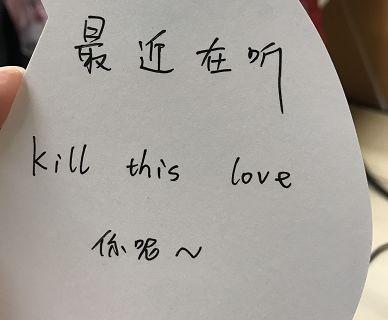 最近在听
kill this love
你呢～